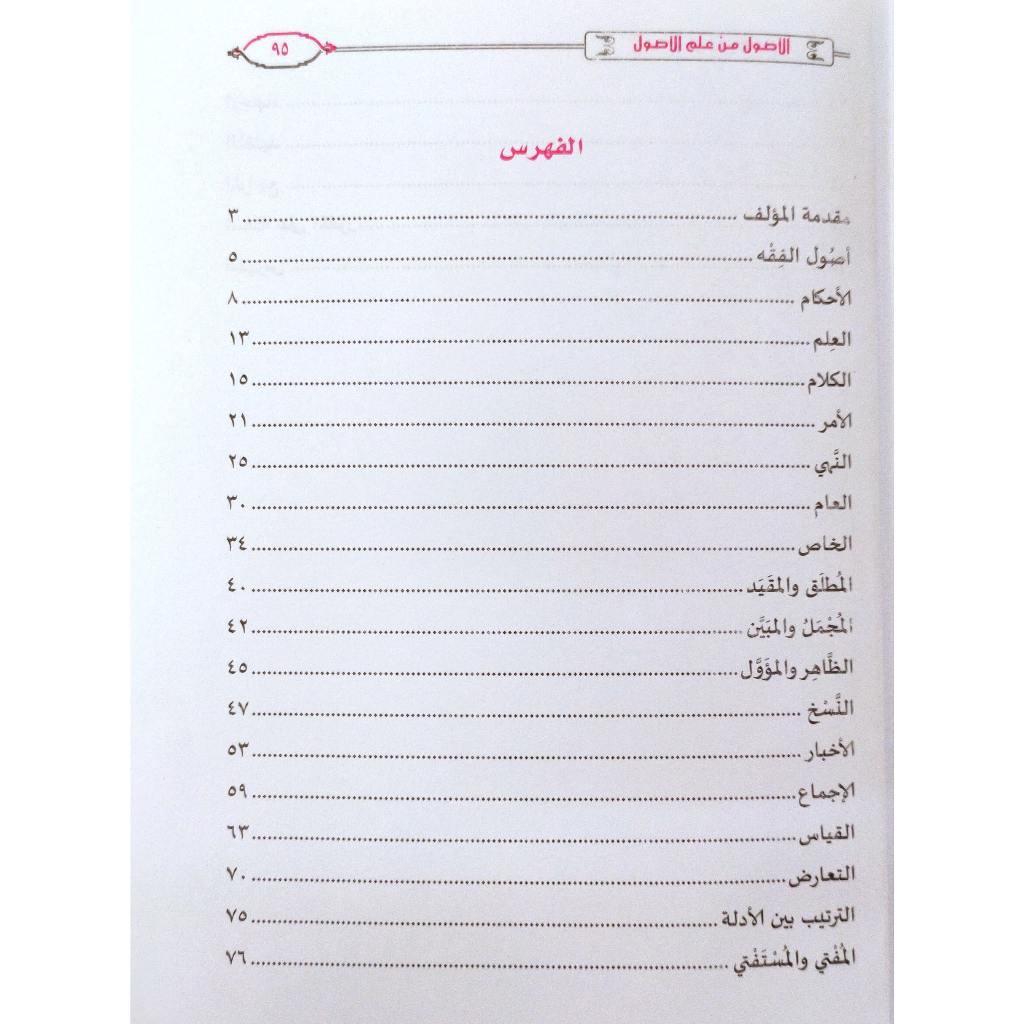 الأصول من علم الأصول ٩٥
الفهرس
مقدمة المؤلف ................ ٣
أصُول الفِقْه ................ ٥
الأحكام ................ ٨
العِلم ................ ١٣
الكلام ................ ١٥
الأمر ................ ٢١
النَّهي ................ ٢٥
العام ................ ٣٠
الخاص ................ ٣٤
المُطلَق والمقَيَد ................ ٤٠
المُجْمَلُ والمبَيَّن ................ ٤٢
الظَّاهِر والمؤَوَّل ................ ٤٥
النَّسْخ ................ ٤٧
الأخبار ................ ٥٣
الإجماع ................ ٥٩
القياس ................ ٦٣
التعارض ................ ٧٠
الترتيب بين الأدلة ................ ٧٥
المُفْتي والمُسْتَفْتي ................ ٧٦